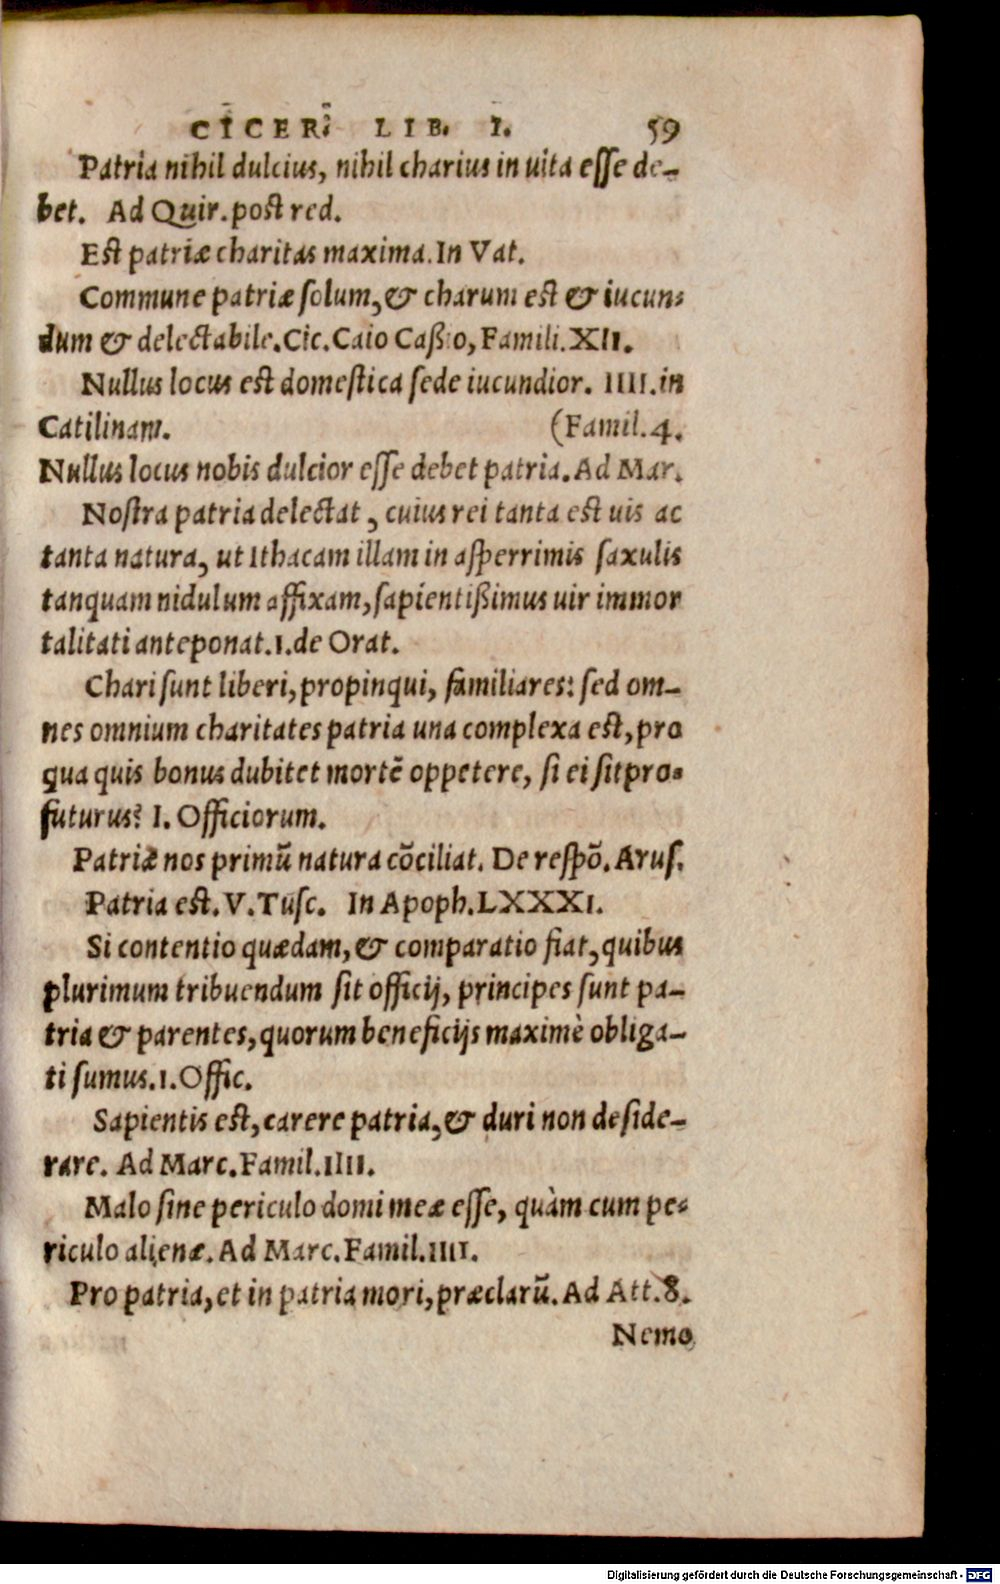 CICER. LIB. I. 59
Patria nihil dulcius, nihil charius in uita esse de-
bet. Ad Quir. post red.
Est patriæ charitas maxima. In Vat.
Commune patriæ solum, & charum est & iucun-
dum & delectabile. Cic. Caio Caßio, Famili. XII.
Nullus locus est domestica sede iucundior. IIII. in
Catilinam. (Famil. 4.
Nullus locus nobis dulcior esse debet patria. Ad Mar.
Nostra patria delectat, cuius rei tanta est uis ac
tanta natura, ut Ithacam illam in asperrimis saxulis
tanquam nidulum affixam, sapientißimus uir immor
talitati anteponat. I. de Orat.
Chari sunt liberi, propinqui, familiares: sed om-
nes omnium charitates patria una complexa est, pro
qua quis bonus dubitet mortē oppetere, si ei sit pro-
futurus? I. Officiorum.
Patriæ nos primū natura cōciliat. De respō. Arus.
Patria est. V. Tusc. In Apoph. LXXXI.
Si contentio quædam, & comparatio fiat, quibus
plurimum tribuendum sit officij, principes sunt pa-
tria & parentes, quorum beneficijs maximè obliga-
ti sumus. I. Offic.
Sapientis est, carere patria, & duri non deside-
rare. Ad Marc. Famil. IIII.
Malo sine periculo domi meæ esse, quàm cum pe-
riculo alienæ. Ad Marc. Famil. IIII.
Pro patria, et in patria mori, præclarū. Ad Att. 8.
Nemo
Digitalisierung gefördert durch die Deutsche Forschungsgemeinschaft - DFG